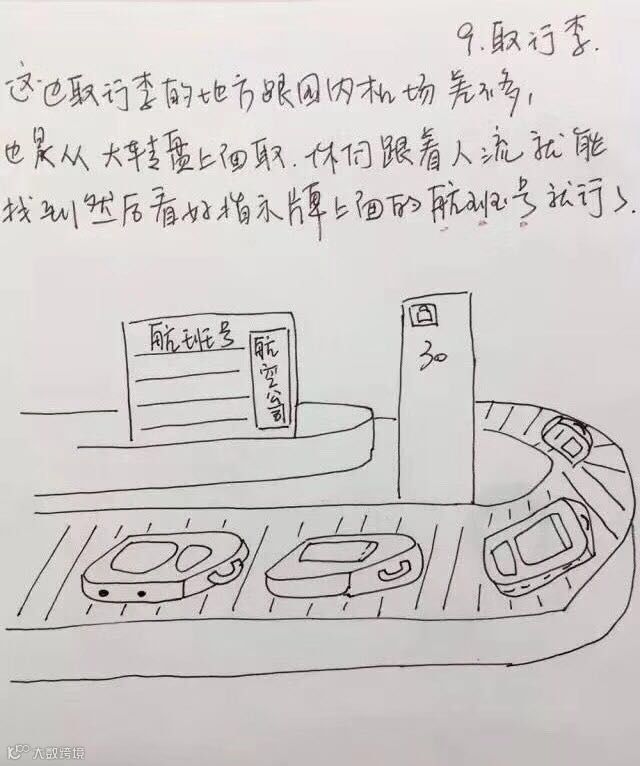 9.取行李.
这也取行李的地方跟国内机场差不多,
也是从大转盘上面取.你们跟着人流就能
找到然后看好指示牌上面的航班号就行了.
航班号
航空公司
30
大数跨境